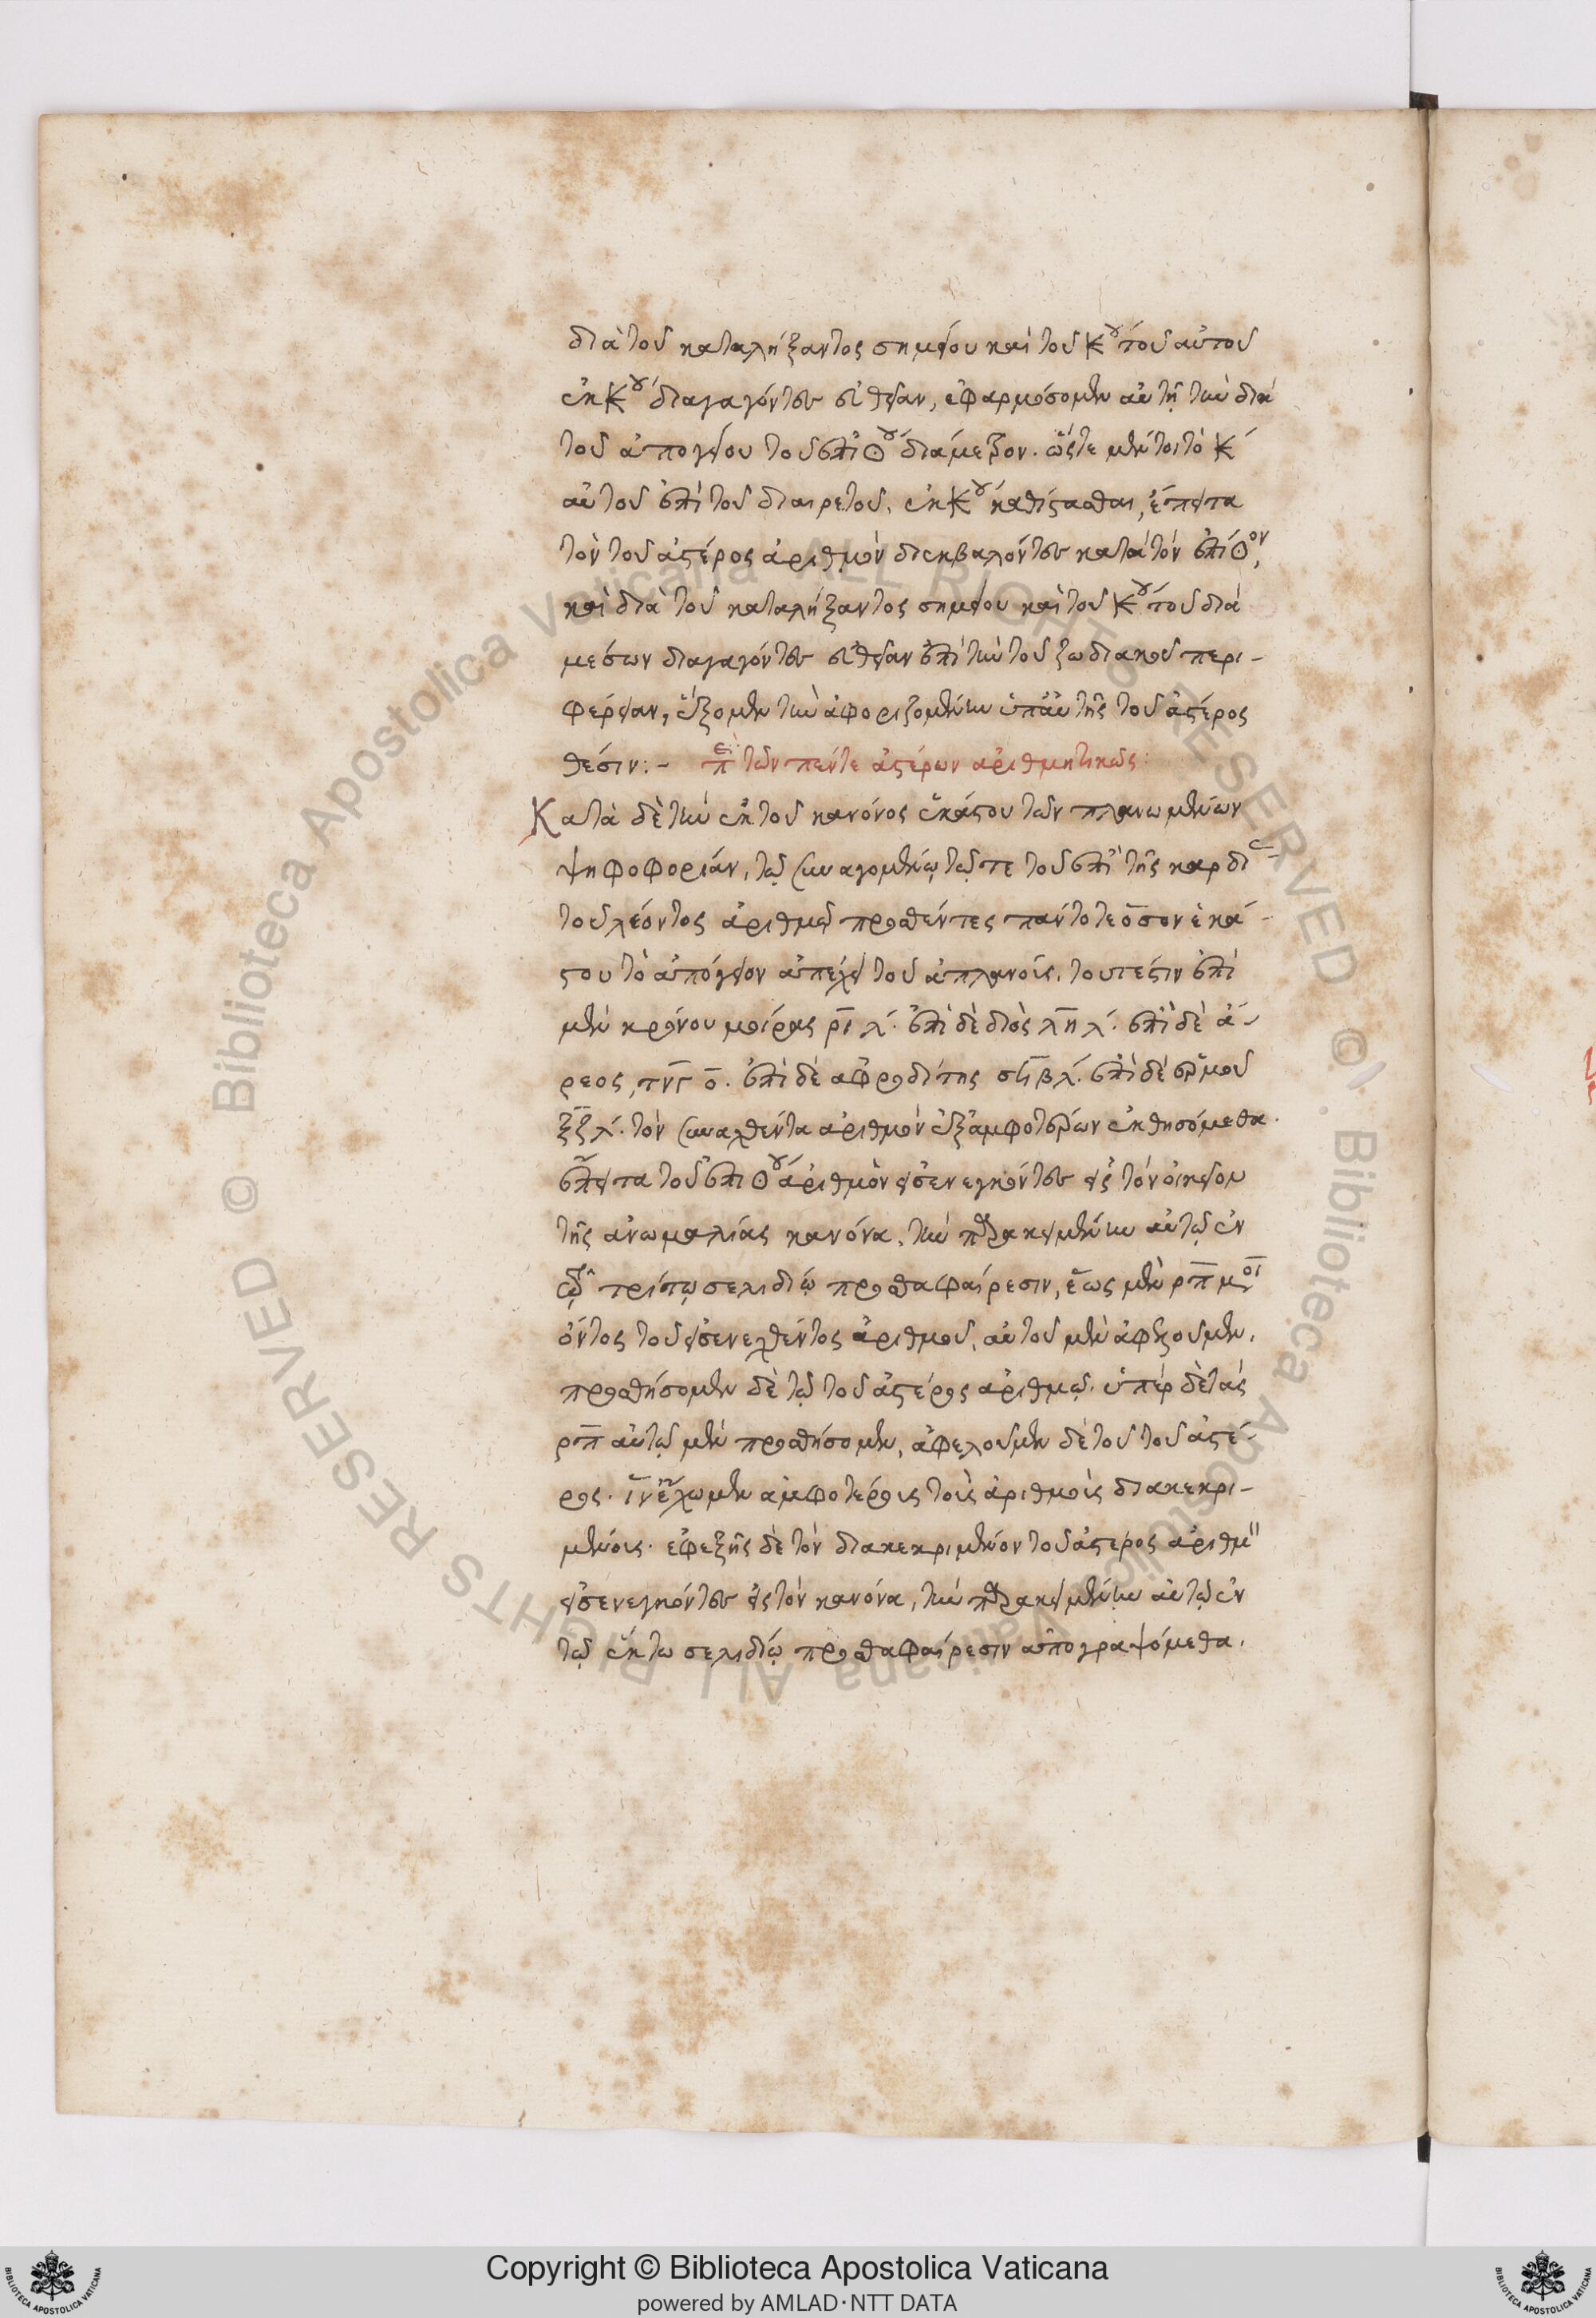 διὰ τοῦ καταλήξαντος σημείου καὶ τοῦ Κου τοῦ αὐτοῦ
ἐκκου διαγαγόντες εὐθεῖαν, ἐφαρμόσομεν αὐτῇ τὴν διὰ
τοῦ ἀπογείου τοῦ ἐπικου διάμετρον. ὥστε μέντοι τὸ Κ
αὐτοῦ ἐπὶ τοῦ διαιρετοῦ ἐκκου καθίστασθαι, ἔπειτα
τὸν τοῦ ἀστέρος ἀριθμὸν διεκβαλόντες κατὰ τὸν ἐπίΘον,
καὶ διὰ τοῦ καταλήξαντος σημείου καὶ τοῦ Κου τοῦ διὰ
μέσων διαγαγόντες εὐθεῖαν ἐπὶ τὴν τοῦ ζωδιακοῦ περι-
φέρειαν, ἕξομεν τὴν ἀφοριζομένην ὑπ' αὐτῆς τοῦ ἀστέρος
θέσιν:- περὶ τῶν πέντε ἀστέρων ἀριθμητικῶς:
Κατὰ δὲ τὴν ἐκ τοῦ κανόνος ἑκάστου τῶν πλανωμένων
ψηφοφορίαν, τῷ συναγομένῳ τῷ τε τοῦ ἐπὶ τῆς καρδί
τοῦ λέοντος ἀριθμῷ προσθέντες πάντοτε ὅσον ἑκά-
στου τὸ ἀπόγειον ἀπέχει τοῦ ἀπλανοῦς. τουτέστιν ἐπὶ
μὲν κρόνου μοίρας ρι λ. ἐπὶ δὲ διὸς λη λ. ἐπὶ δὲ ἄ-
ρεος, πνγ ο. ἐπὶ δὲ ἀφροδίτης σϟβ λ. ἐπὶ δὲ ἑρμοῦ
ξζ λ. τὸν συναχθέντα ἀριθμὸν ἐξ ἀμφοτέρων ἐκθησόμεθα.
ἔπειτα τοῦ ἐπι Θου ἀριθμὸν εἰσενεγκόντες εἰς τὸν οἰκεῖον
τῆς ἀνωμαλίας κανόνα, τὴν παρακειμένην αὐτῷ ἐν
τῷ τρίτῳ σελιδίῳ προσθαφαίρεσιν, ἕως μὲν ρπ μοι
ὄντος τοῦ εἰσενεχθέντος ἀριθμοῦ, αὐτοῦ μὲν ἀφέξουμεν,
προσθήσομεν δὲ τῷ τοῦ ἀστέρος ἀριθμῷ. ὑπὲρ δὲ τὰς
ρπ αὐτῷ μὲν προσθήσομεν, ἀφελοῦμεν δὲ τοῦ τοῦ ἀστέ-
ρος. ἵν' ἔχωμεν ἀμφοτέροις τοῖς ἀριθμοῖς διακεκρι-
μένοις. ἐφεξῆς δὲ τὸν διακεκριμένον τοῦ ἀστέρος ἀριθμ
εἰσενεγκόντες εἰς τὸν κανόνα, τὴν παρακειμένην αὐτῷ ἐν
τῷ ἕκτω σελιδίῳ προσθαφαίρεσιν ἀπογραψόμεθα.
Copyright © Biblioteca Apostolica Vaticana
powered by AMLAD·NTT DATA